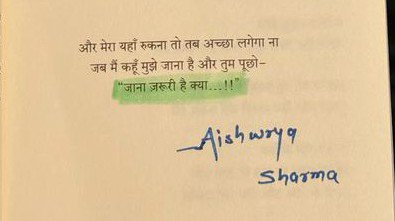 और मेरा यहाँ रुकना तो तब अच्छा लगेगा ना
जब मैं कहूँ मुझे जाना है और तुम पूछो–
“जाना ज़रूरी है क्या...!!”
Aishwrya
Sharma